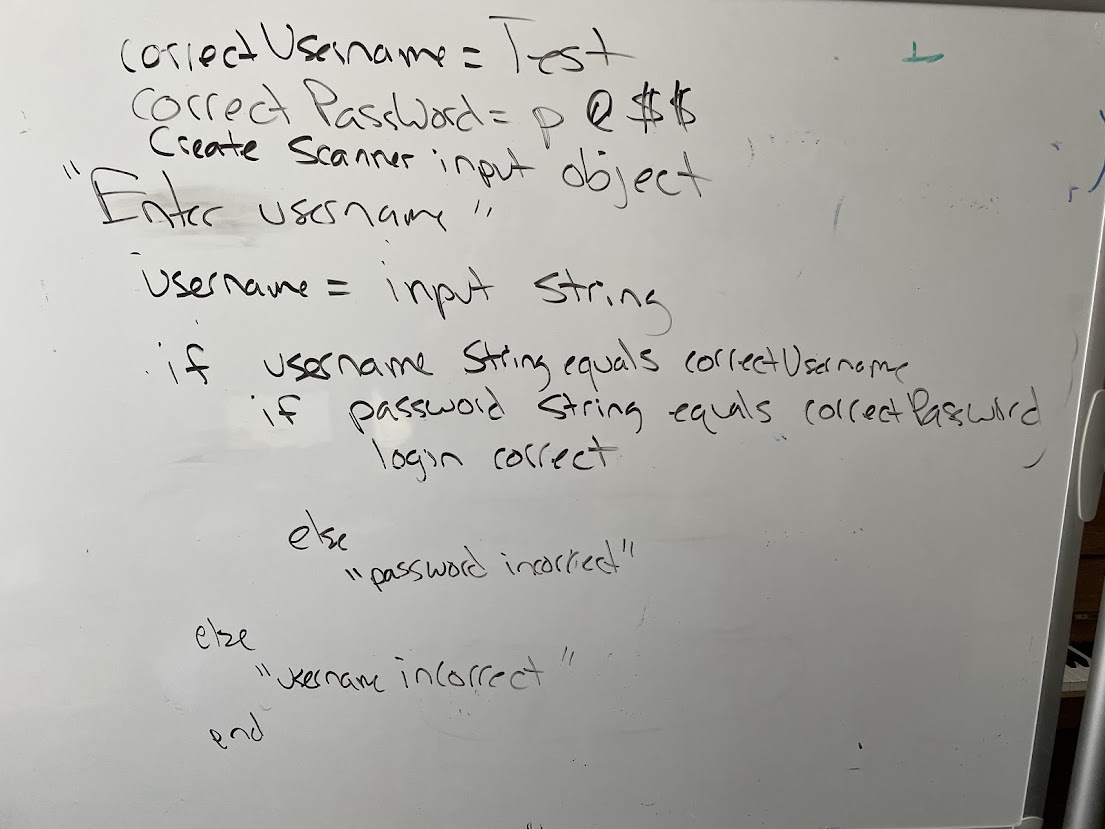 correctUsername = Test
correctPassword = p@$$
Create Scanner input object
"Enter username"
username = input string
if username String equals correctUsername
if password string equals correctPassword
login correct
else
"password incorrect"
else
"username incorrect"
end